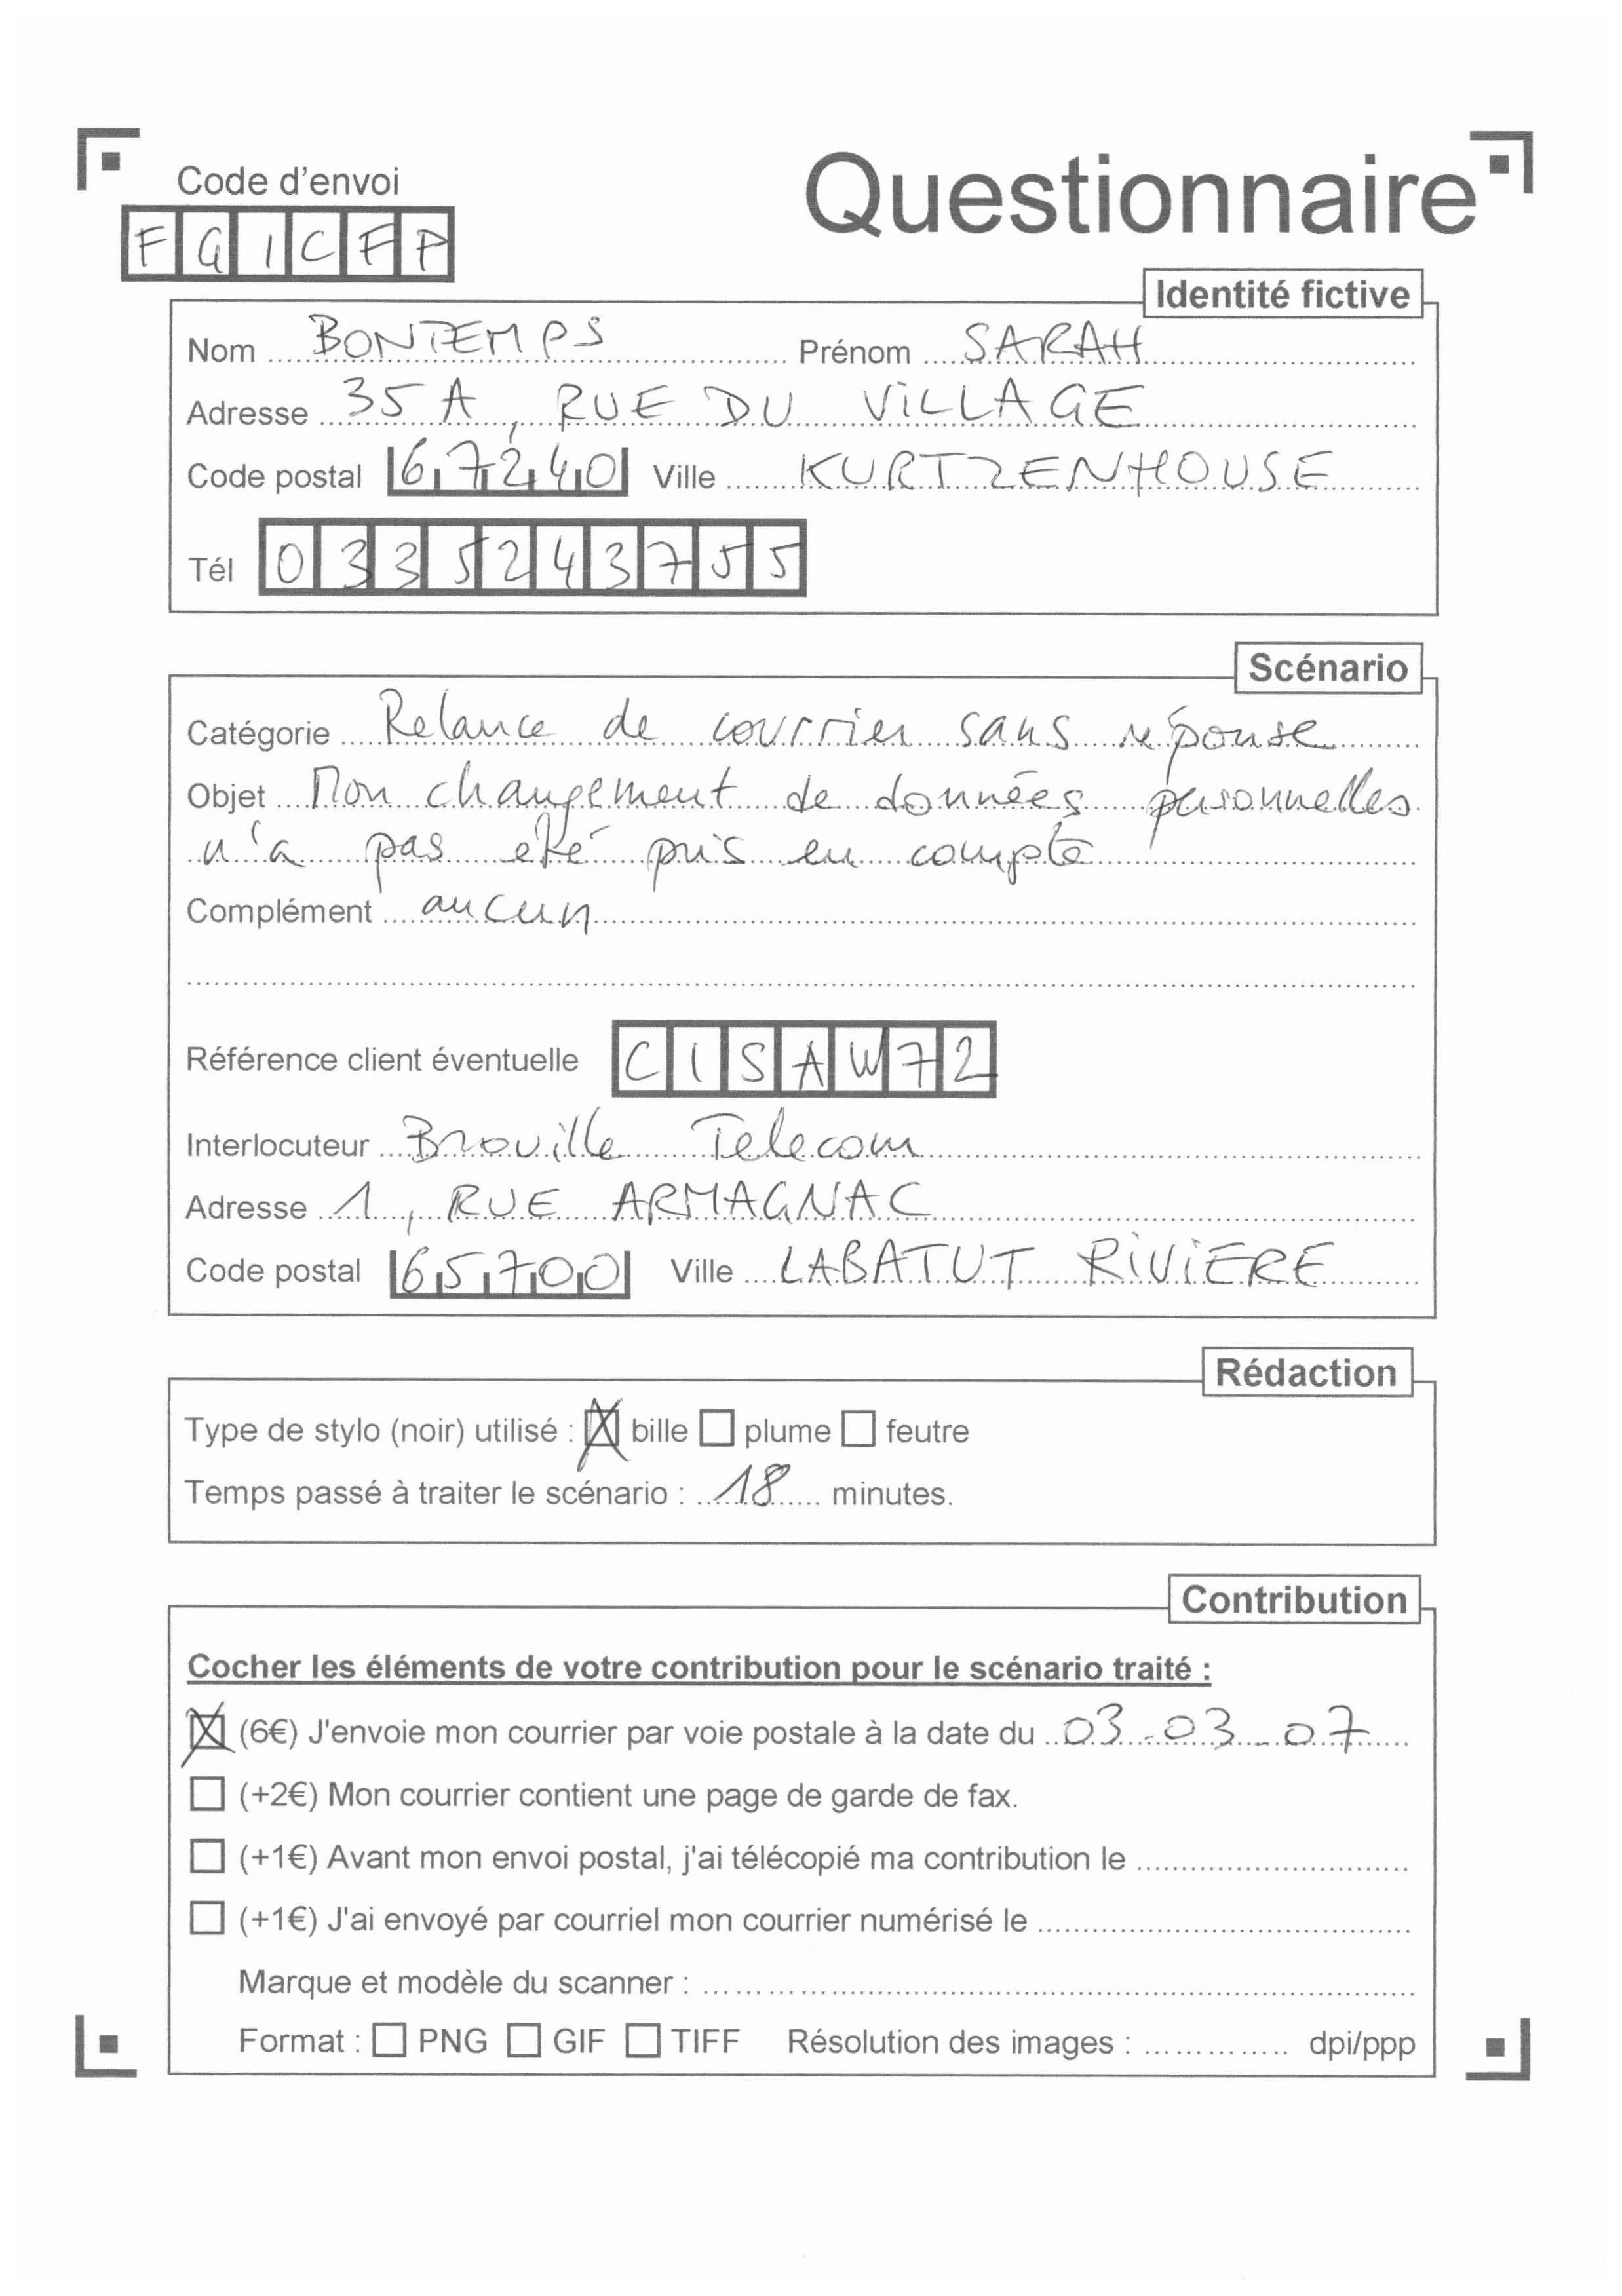 Code d'envoi
Questionnaire
FGICFP
Identité fictive
Nom BONTEMPS Prénom SARAH
Adresse 35A, RUE DU VILLAGE
Code postal 67240 Ville KURTZENHOUSE
Tél 0335243755
Scénario
Catégorie Relance de courrier sans réponse
Objet Mon changement de données personnelles
n'a pas été pris en compte
Complément aucun
Référence client éventuelle CISAW72
Interlocuteur Brouille Telecom
Adresse 1, RUE ARMAGNAC
Code postal 65700 Ville LABATUT RIVIERE
Rédaction
Type de stylo (noir) utilisé : ☒ bille ☐ plume ☐ feutre
Temps passé à traiter le scénario : 18 minutes.
Contribution
Cocher les éléments de votre contribution pour le scénario traité :
☒ (6€) J'envoie mon courrier par voie postale à la date du 03-03-07
☐ (+2€) Mon courrier contient une page de garde de fax.
☐ (+1€) Avant mon envoi postal, j'ai télécopié ma contribution le
☐ (+1€) J'ai envoyé par courriel mon courrier numérisé le
Marque et modèle du scanner :
Format : ☐ PNG ☐ GIF ☐ TIFF Résolution des images : dpi/ppp